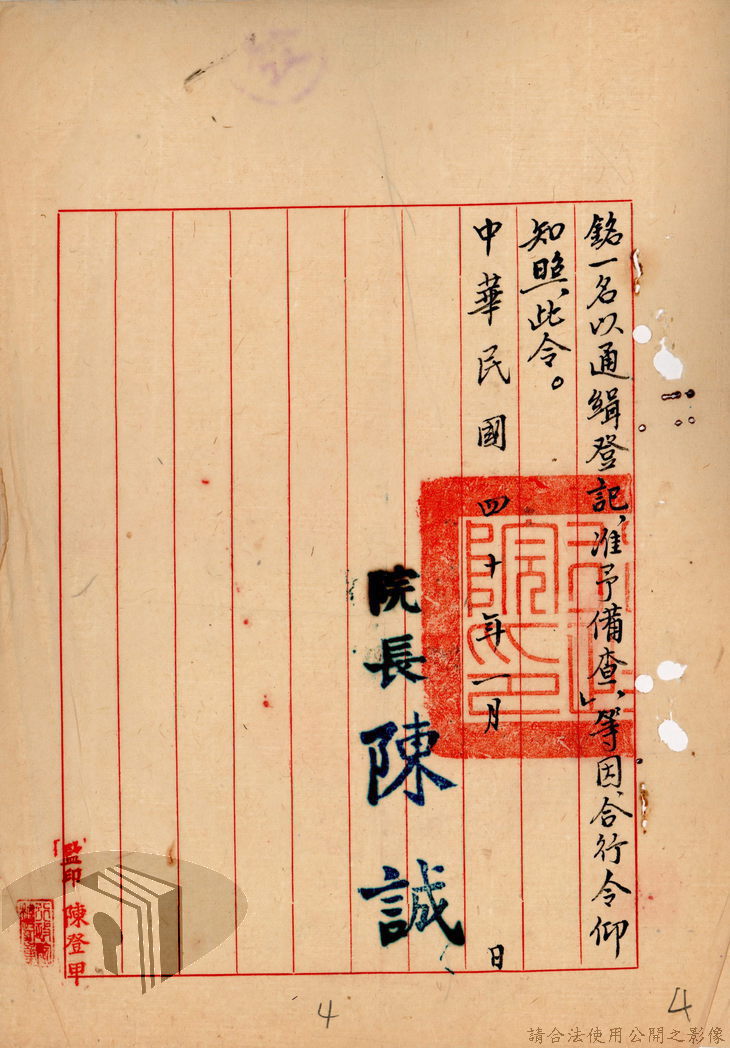 銘一名以通緝登記，准予備查」，等因，合行令仰
知照，此令。
中華民國四十年一月　日
院長陳誠
監印陳登甲
4
4
請合法使用公開之影像